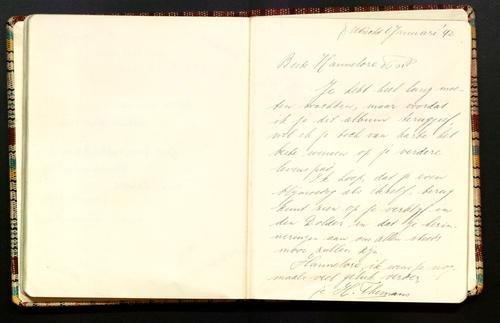 Utrecht Januari '42
Beste Hannelore
Je hebt heel lang moe-
ten wachten, maar voordat
ik je dit album teruggeef,
wil ik je toch van harte het
beste wensen op je verdere
levenspad.
Ik hoop, dat je even
als ikzelf, terug
kunt zien op je verblijf in
den Dolder, en dat je herin-
neringen aan ons allen steeds
mooi zullen zijn.
Hannelore, ik wens je nog-
maals veel geluk verder.
je H. Themans